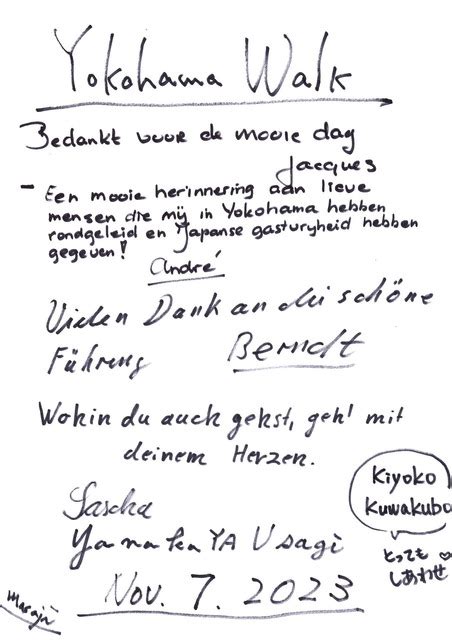 Yokohama Walk
Bedankt voor de mooie dag
Jacques
- Een mooie herinnering aan lieve
mensen die mij in Yokohama hebben
rondgeleid en Japanse gastvryheid hebben
gegeven!
André
Vielen Dank an die schöne
Führung Berndt
Wohin du auch gehst, geh' mit
deinem Herzen.
Sascha
Yanaka YA Usagi
Kiyoko
Kuwakubo
とっても♡
しあわせ
Nov. 7. 2023